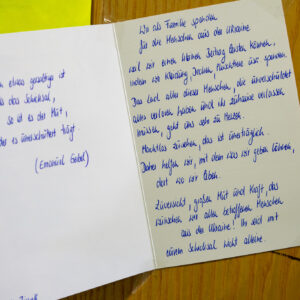 etwas gewaltiger ist
das Schicksal,
so ist es der Mut,
der es unerschüttert trägt
(Emanuel Geibel)
Wir als Familie spenden
für die Menschen aus der Ukraine
weil wir einen kleinen Beitrag leisten können,
indem wir Kleidung, Decken, Hausschuhe usw. spenden.
Das Leid aller dieser Menschen, die unverschuldet
alles verloren haben und ihr zuhause verlassen
müssen, geht uns sehr zu Herzen.
Machtlos zusehen, das ist unerträglich.
Daher helfen wir, mit dem was wir geben können,
dort wo wir leben.
Zuversicht, großen Mut und Kraft, das
wünschen wir allen betroffenen Menschen
aus der Ukraine! Ihr seid mit
eurem Schicksal nicht alleine.